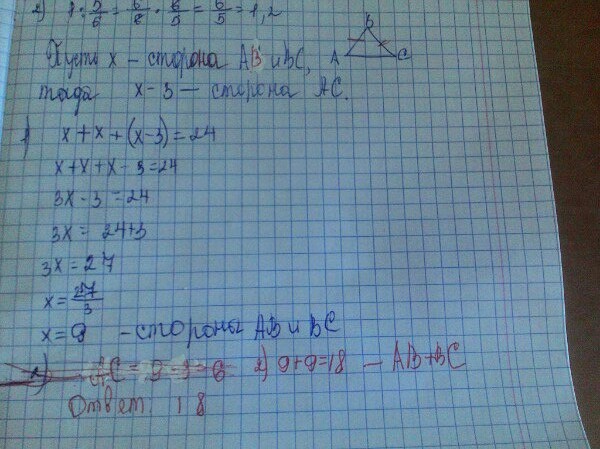 2) 1:5/6 = 6/6 · 6/5 = 6/5 = 1,2
B
A C
Пусть x – сторона AB и BC,
тогда x-3 — сторона AC.
1 x+x+(x-3)=24
x+x+x-3=24
3x-3=24
3x= 24+3
3x=27
x=27/3
x=9 – стороны AB и BC
2) AC=9-3=6 2) 9+9=18 – AB+BC
Ответ: 18